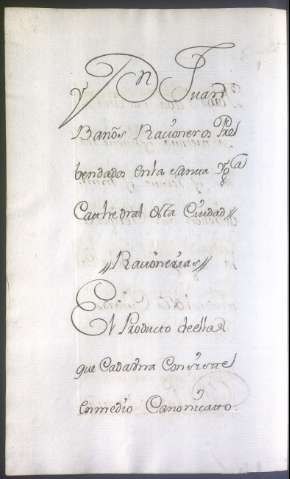 y Dn Juan
Baños Racioneros Pre
bendados en la Sancta Yga
Cathedral de la Ciudad
Racioneria
El Producto de ellas
que Cada una Consiste
en medio Canonicato.